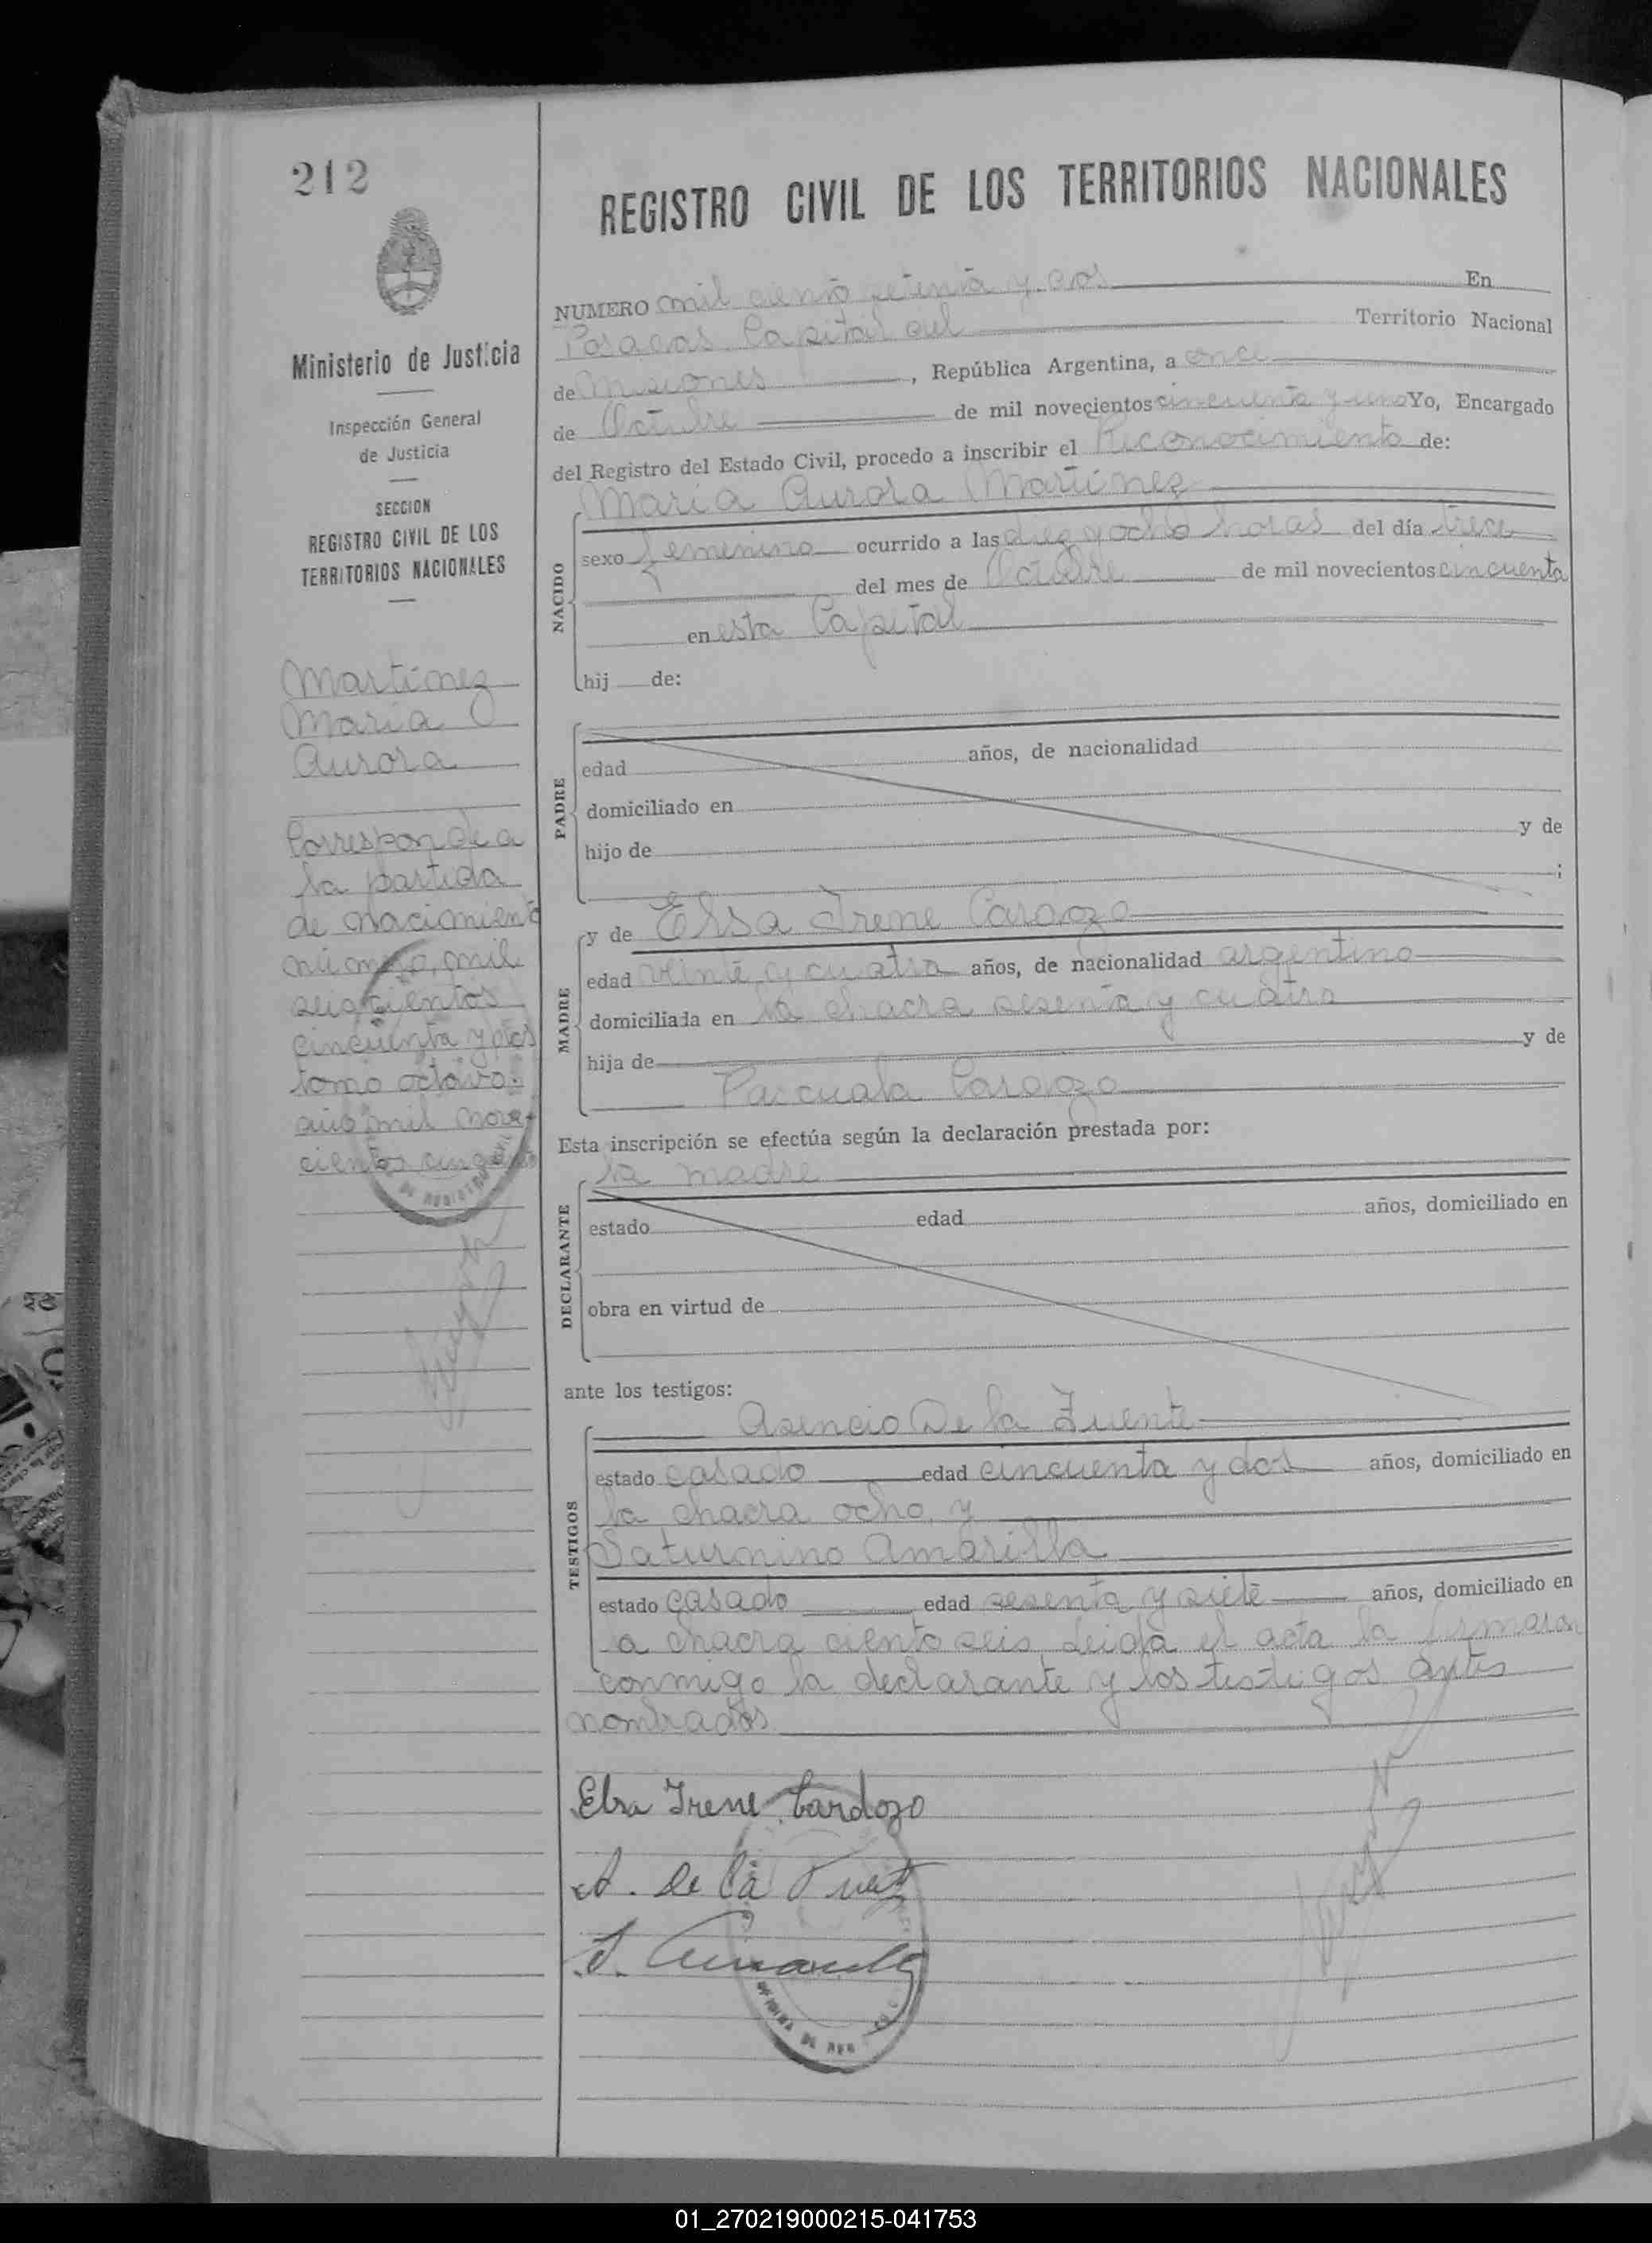 212
REGISTRO CIVIL DE LOS TERRITORIOS NACIONALES
Ministerio de Justicia
Inspección General
de Justicia
SECCION
REGISTRO CIVIL DE LOS
TERRITORIOS NACIONALES
Martínez
María
Aurora
Corresponde a
la partida
de nacimiento
número mil
seiscientos
cincuenta y dos
tomo octavo
año mil nove-
cientos
NUMERO mil ciento setenta y dos En
Posadas Capital del Territorio Nacional
de Misiones, República Argentina, a once
de Octubre de mil novecientos cincuenta y uno Yo, Encargado
del Registro del Estado Civil, procedo a inscribir el Reconocimiento de:
María Aurora Martínez
NACIDO
sexo femenino ocurrido a las diez y ocho horas del día trece
del mes de Octubre de mil novecientos cincuenta
en esta Capital
hij de:
PADRE
edad años, de nacionalidad
domiciliado en
hijo de y de
;
MADRE
y de Elsa Irene Cardozo
edad veinte y cuatro años, de nacionalidad argentino
domiciliada en la chacra sesenta y cuatro
hija de y de
Pascuala Cardozo
Esta inscripción se efectúa según la declaración prestada por:
la madre
DECLARANTE
estado edad años, domiciliado en
obra en virtud de
ante los testigos:
TESTIGOS
Asencio De la Fuente
estado casado edad cincuenta y dos años, domiciliado en
la chacra ocho y
Saturnino Amarilla
estado casado edad sesenta y siete años, domiciliado en
la chacra ciento seis Leida el acta la firmaron
conmigo la declarante y los testigos antes
nombrados
Elsa Irene Cardozo
A. de la Fuente
S. Amarilla
01_270219000215-041753